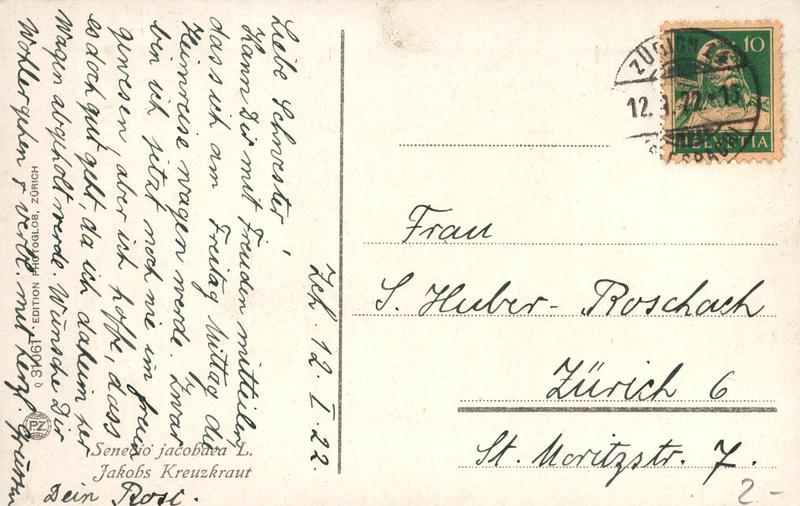 Zch. 12. I. 22.
Liebe Schwester!
Kann Dir mit Freuden mitteilen,
dass ich am Freitag Mittag die
Heimreise wagen werde. Zwar
bin ich jetzt noch nie im Freien
gewesen, aber ich hoffe, dass
es doch gut geht, da ich daheim per
Wagen abgeholt werde. Wünsche Dir
Wohlergehen & verbl. mit herzl. Grüssen
Dein Rosc.
Senecio jacobaea L.
Jakobs Kreuzkraut
Q 31061. EDITION PHOTOGLOB, ZÜRICH
PZ
ZÜRICH
12. 22
10
HELVETIA
Frau
S. Huber-Roschach
Zürich 6
St. Moritzstr. 7.
2.-